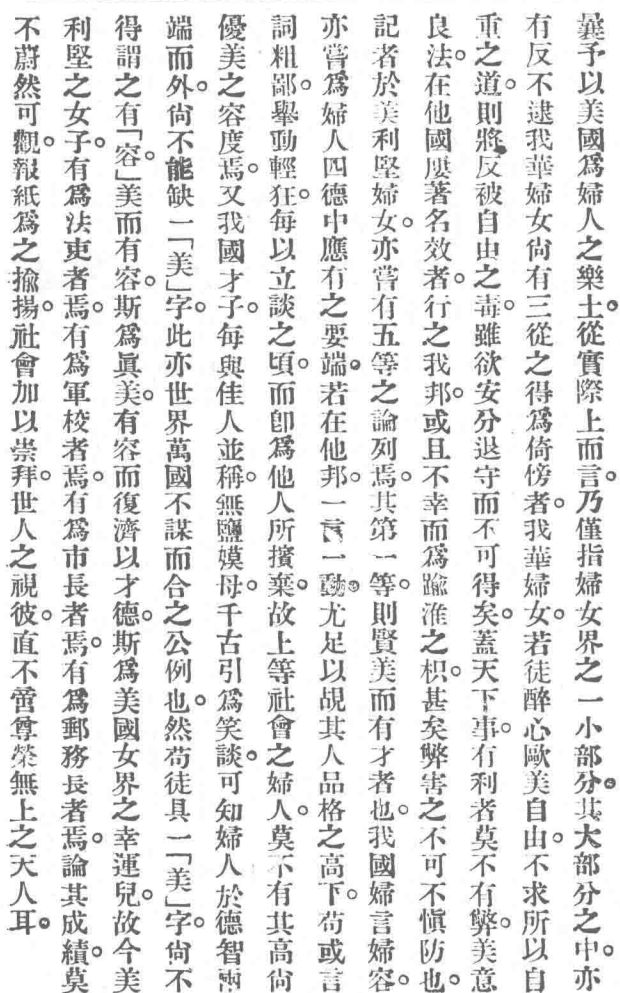 曩予以美國爲婦人之樂土。從實際上而言。乃僅指婦女界之一小部分。其大部分之中。亦
有反不逮我華婦女尙有三從之得爲倚傍者。我華婦女。若徒醉心歐美自由。不求所以自
重之道。則將反被自由之毒。雖欲安分退守而不可得矣。蓋天下事。有利者莫不有弊。美意
良法。在他國屢著名效者。行之我邦。或且不幸而爲踰淮之枳。甚矣弊害之不可不愼防也。
記者於美利堅婦女。亦嘗有五等之論列焉。其第一等。則賢美而有才者也。我國婦言婦容。
亦嘗爲婦人四德中應有之要端。若在他邦。一言一動。尤足以覘其人品格之高下。苟或言
詞粗鄙。舉動輕狂。每以立談之頃。而卽爲他人所擯棄。故上等社會之婦人。莫不有其高尙
優美之容度焉。又我國才子。每與佳人並稱。無鹽嫫母。千古引爲笑談。可知婦人於德智兩
端而外。尙不能缺一「美」字。此亦世界萬國不謀而合之公例也。然苟徒具一「美」字。尙不
得謂之有「容。」美而有容。斯爲眞美。有容而復濟以才德。斯爲美國女界之幸運兒。故今美
利堅之女子。有爲法吏者焉。有爲軍校者焉。有爲市長者焉。有爲郵務長者焉。論其成績。莫
不蔚然可觀。報紙爲之揄揚。社會加以崇拜。世人之視彼。直不啻尊榮無上之天人耳。